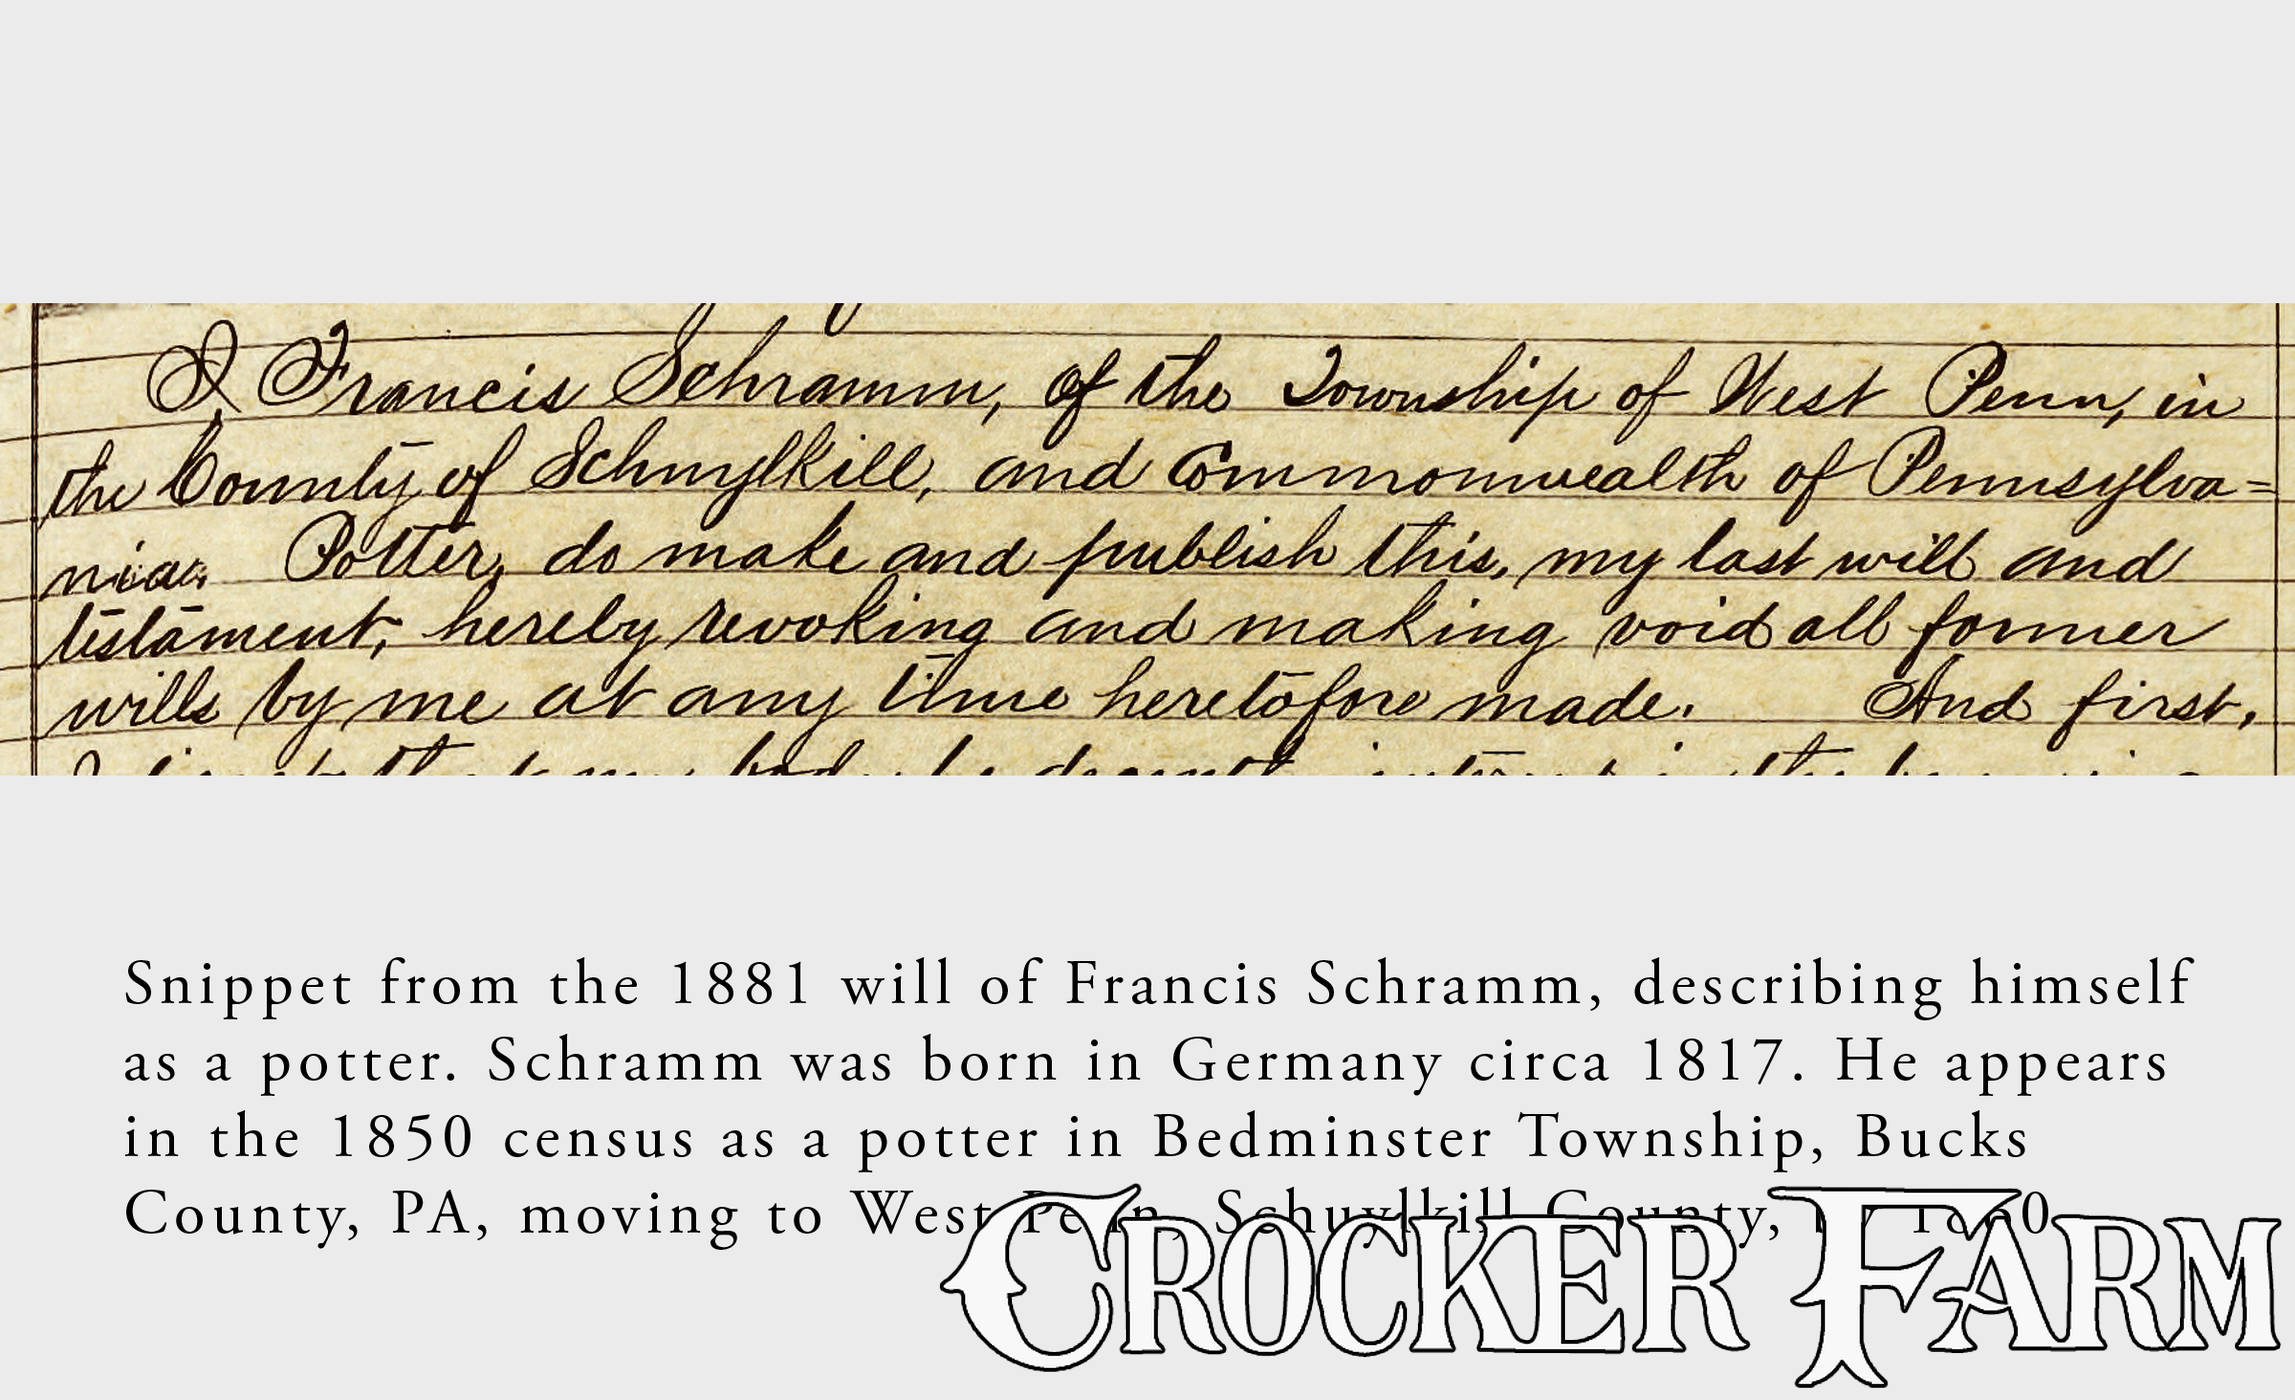 I Francis Schramm, of the Township of West Penn, in
the County of Schuylkill, and Commonwealth of Pennsylva=
nia. Potter, do make and publish this, my last will and
testament, hereby revoking and making void all former
wills by me at any time heretofore made. And first,
Snippet from the 1881 will of Francis Schramm, describing himself
as a potter. Schramm was born in Germany circa 1817. He appears
in the 1850 census as a potter in Bedminster Township, Bucks
County, PA, moving to West Penn, Schuylkill County, by 1860.
CROCKER FARM